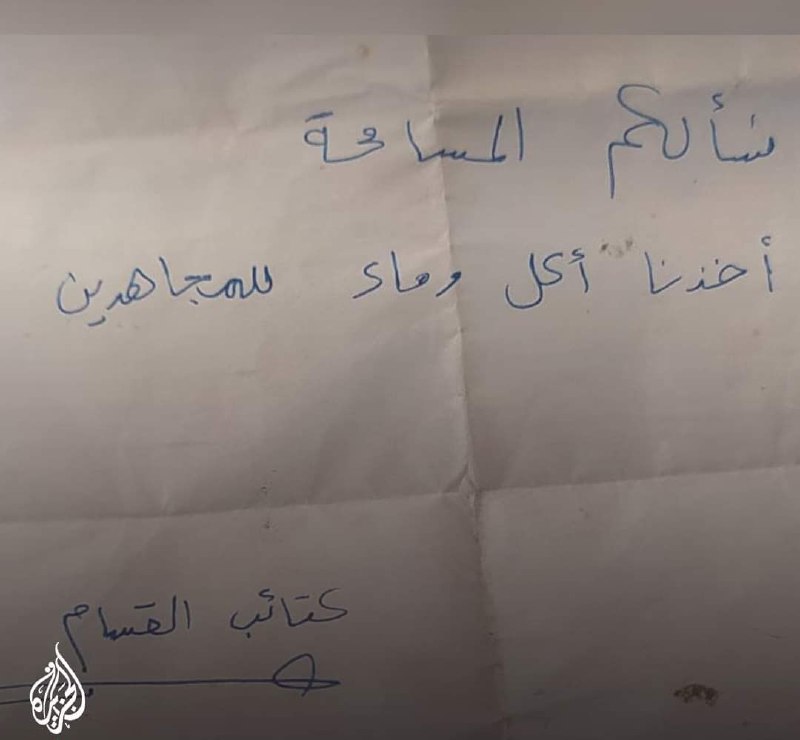 نسألكم المسامحة
أخذنا أكل وماء للمجاهدين
كتائب القسام
الجزيرة